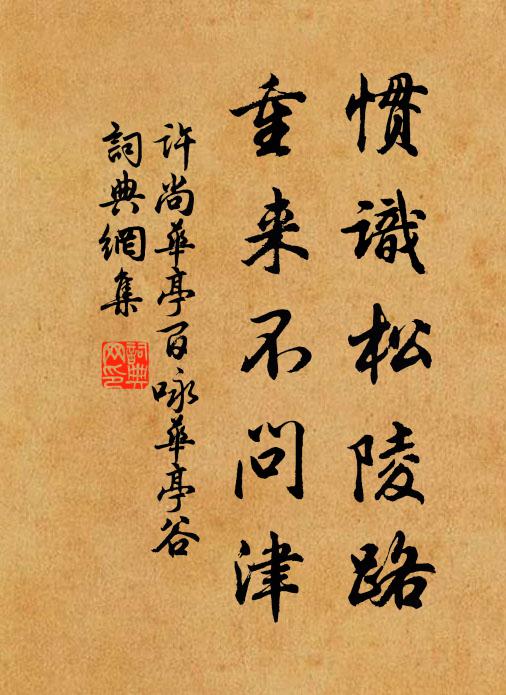 惯識松陵路
重来不问津
许尚華亭百咏華亭谷
詞典網集
詞典
网印